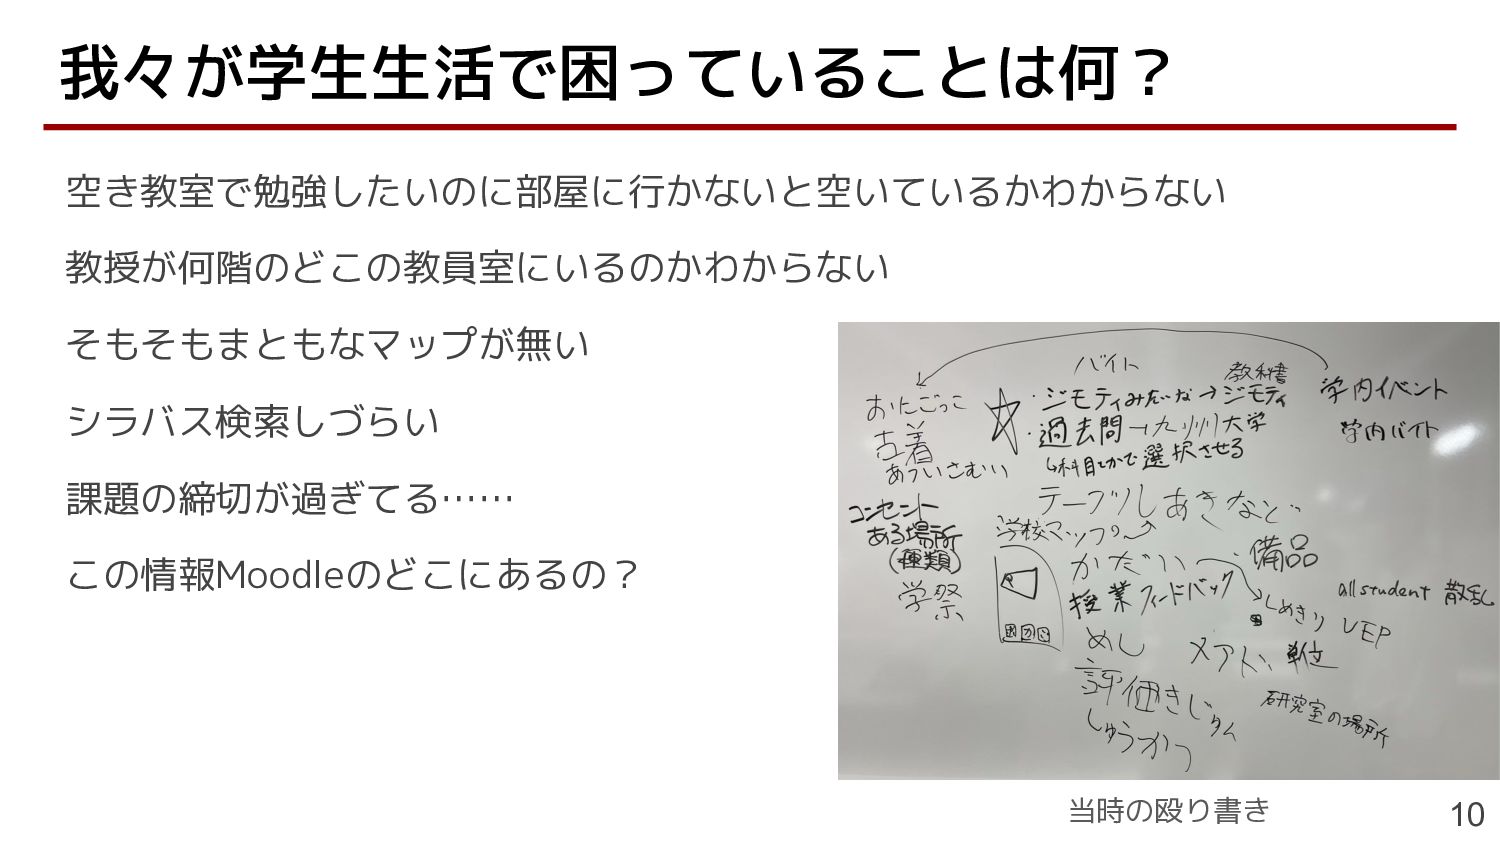 我々が学生生活で困っていることは何？
空き教室で勉強したいのに部屋に行かないと空いているかわからない
教授が何階のどこの教員室にいるのかわからない
そもそもまともなマップが無い
シラバス検索しづらい
課題の締切が過ぎてる……
この情報Moodleのどこにあるの？
バイト
教科書
おにごっこ
・ジモティみたいな→ジモティ
学内イベント
古着
・過去問→九州大学
学内バイト
あついさむい
↳科目とかで選択させる
コンセント
ある場所
(種類)
テーブルしあきなど
学校マップの
かだい
備品
学祭
授業フィードバック
しめきり
allstudent 散乱
VEP
めし
メアド
単位
評価きじゅん
研究室の場所
しゅうかつ
当時の殴り書き
10